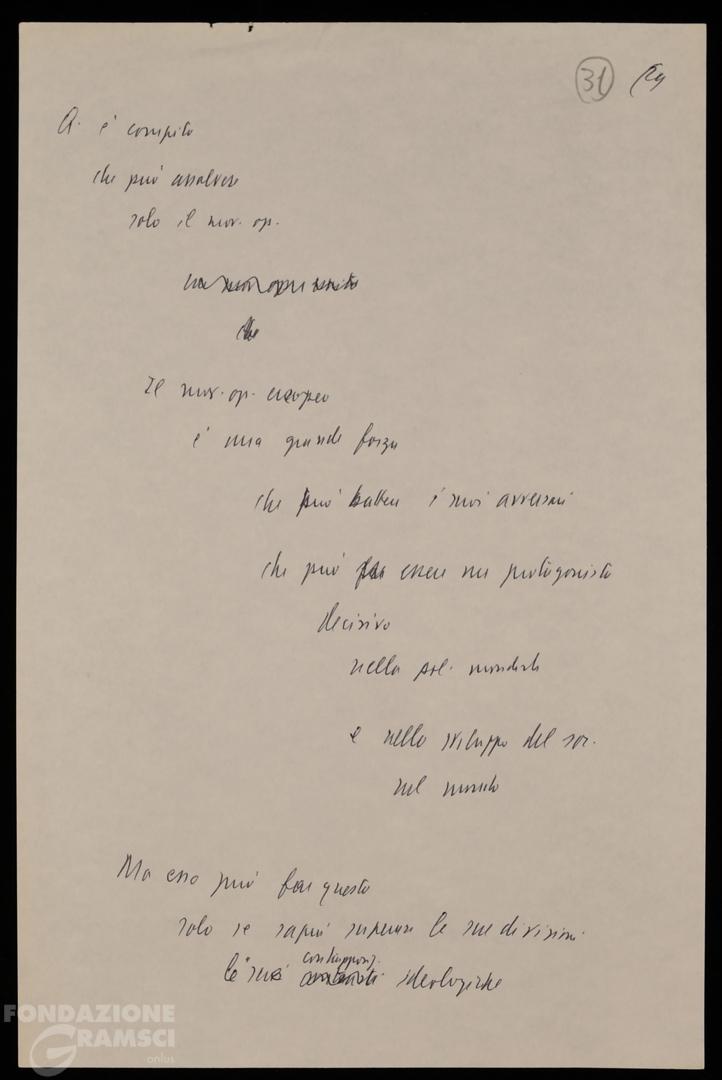 31
Q. è compito
che può assolvere
solo il mov. op.
che
Il mov. op. europeo
è una grande forza
che può battere i suoi avversari
che può essere un protagonista
decisivo
nella pol. mondiale
e nello sviluppo del soc.
nel mondo
Ma esso può far questo
solo se saprà superare le sue divisioni
contrappos.
le sue ideologiche
FONDAZIONE
GRAMSCI
onlus